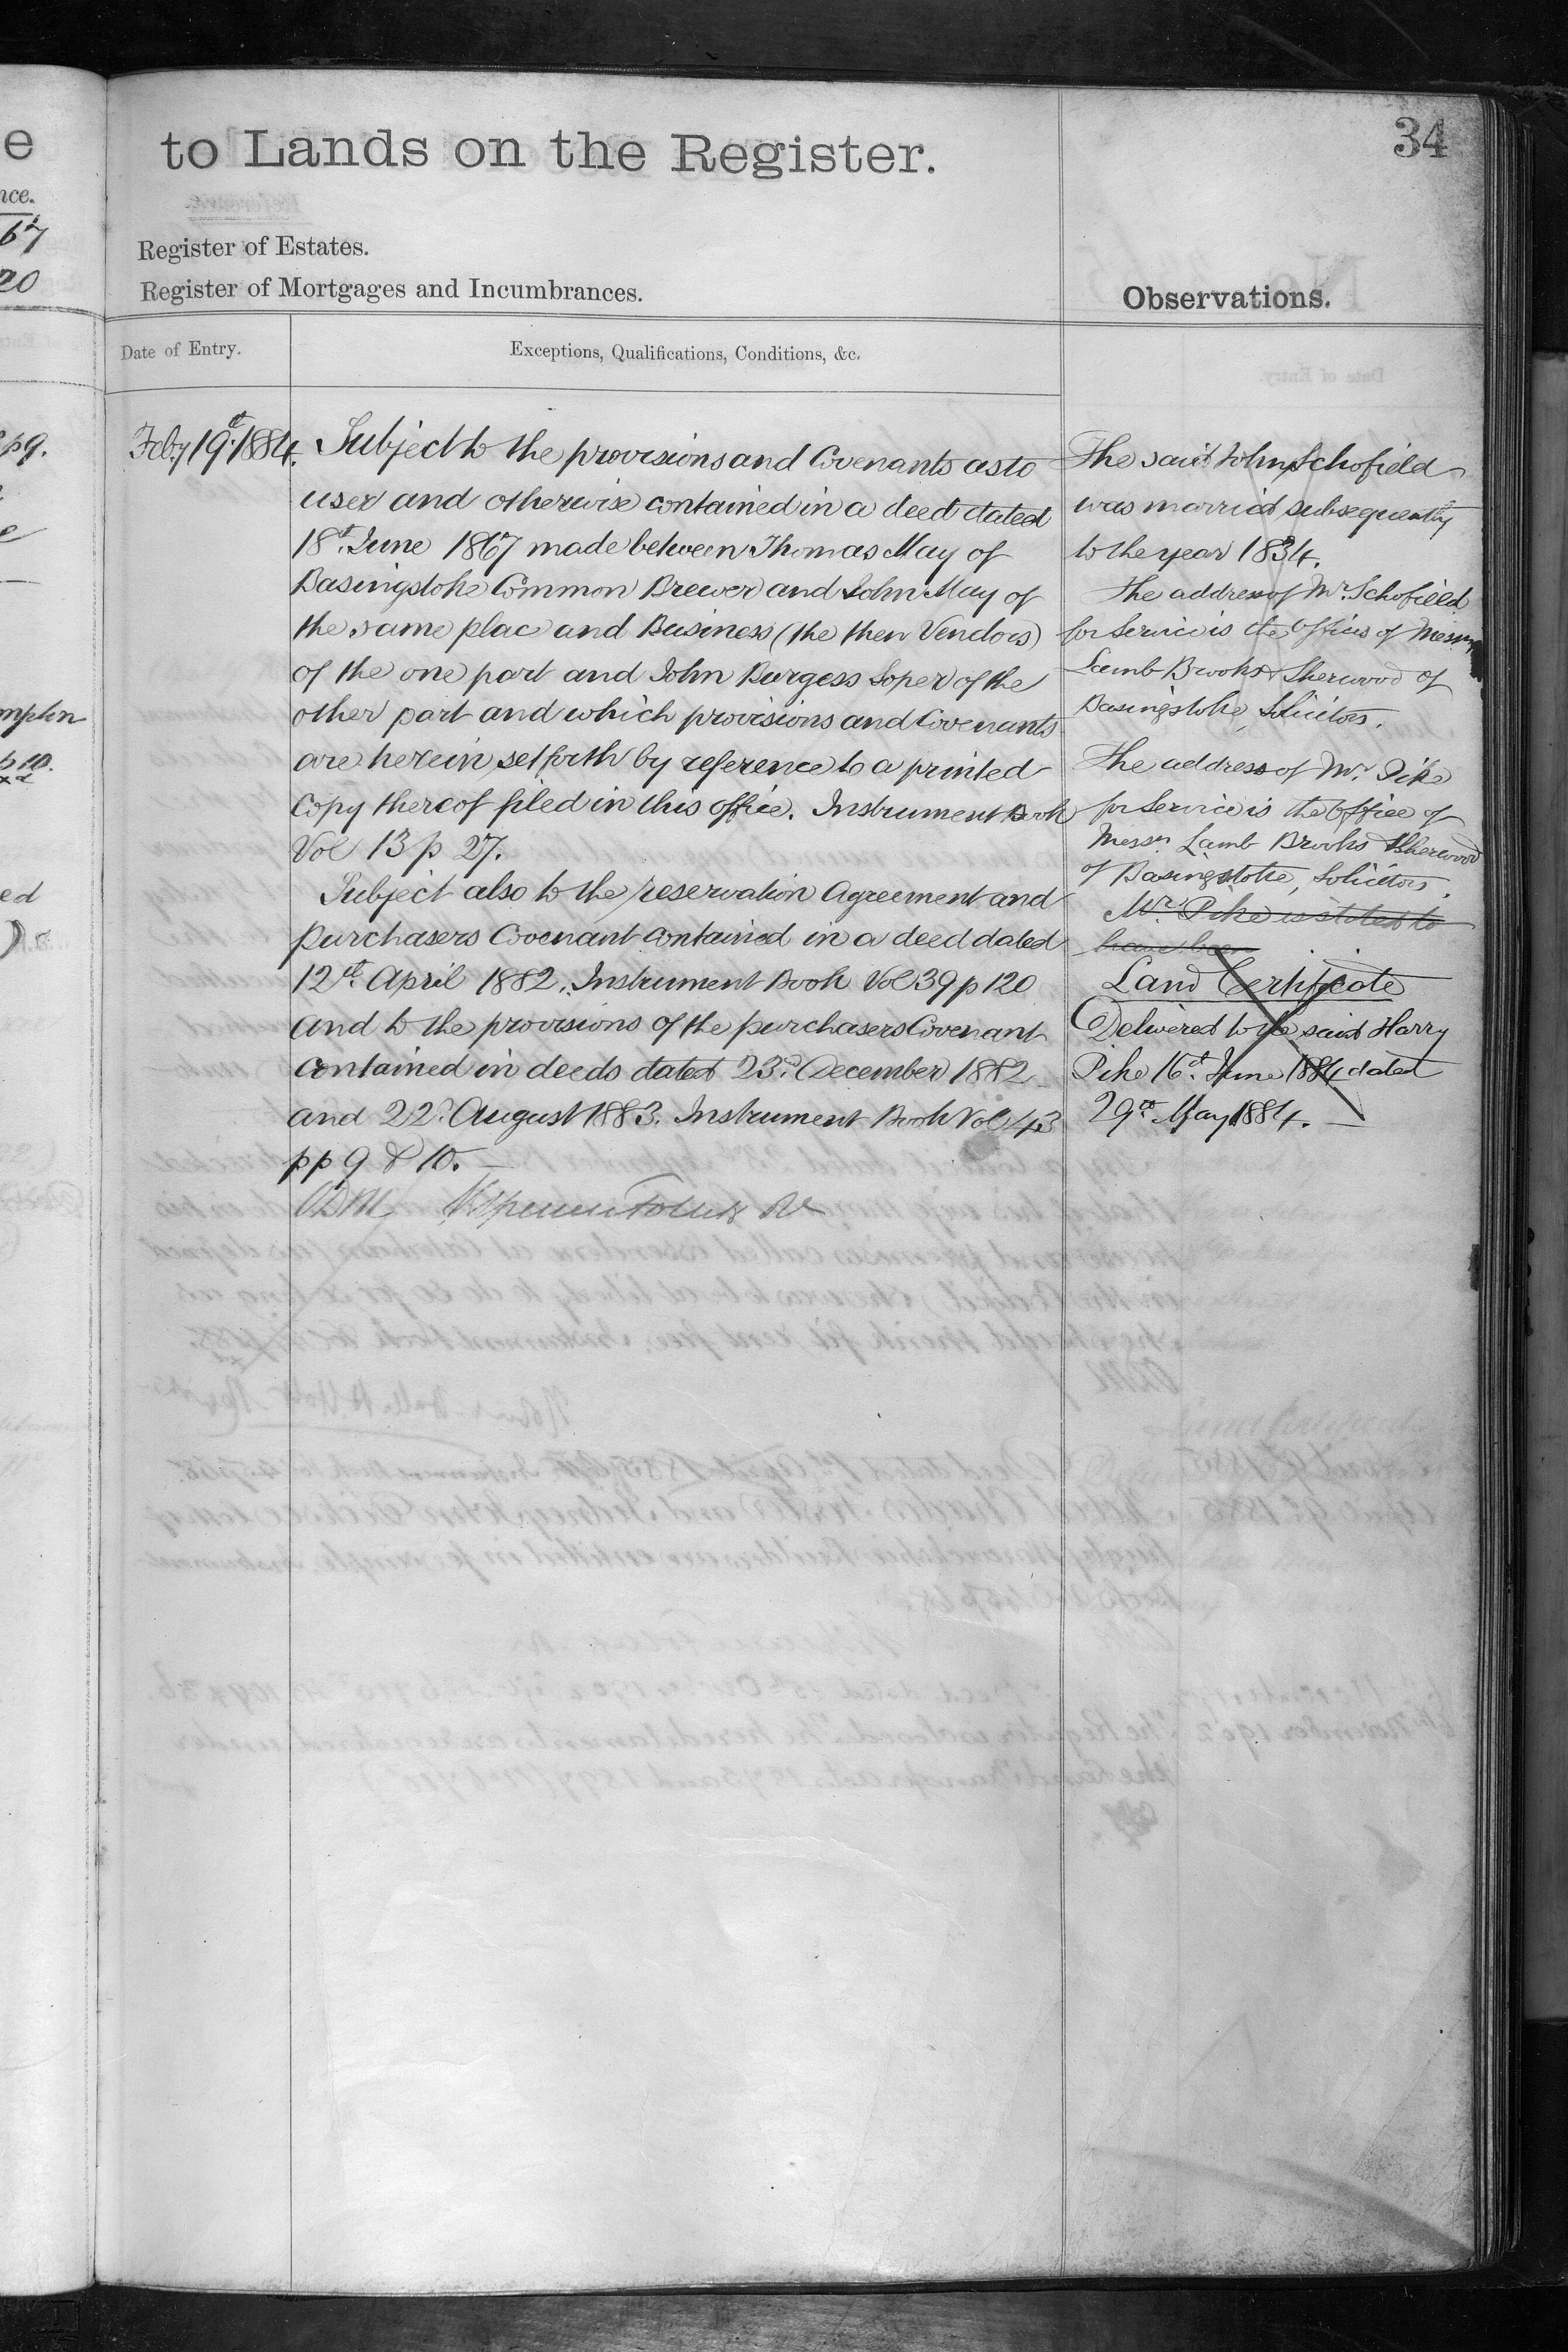 e
nce.
67
20
pg.
mplin
p 10.
ed
to Lands on the Register.
34
Register of Estates.
Register of Mortgages and Incumbrances.
Observations.
Date of Entry.
Exceptions, Qualifications, Conditions, &c.
Feby 19th 1884.
Subject to the provisions and Covenants as to
user and otherwise contained in a deed dated
18th June 1867 made between Thomas May of
Basingstoke Common Brewer and John May of
the same place and Business (the then Vendors)
of the one part and John Burgess Soper of the
other part and which provisions and Covenants
are herein set forth by reference to a printed
Copy thereof filed in this office. Instrument Book
Vol 13 p 27.
Subject also to the reservation Agreement and
purchasers Covenant contained in a deed dated
12th April 1882. Instrument Book Vol 39 p 120
and to the provisions of the purchasers Covenant
contained in deeds dated 23rd December 1882
and 22nd August 1883. Instrument Book Vol 43
pp 9 & 10.
The said John Schofield
was married subsequently
to the year 1834.
The address of Mr. Schofield
for Service is the Offices of Messrs
Lamb Brooks & Sherwood of
Basingstoke, Solicitors.
The address of Mr. Pike
for Service is the Office of
Messrs Lamb Brooks & Sherwood
of Basingstoke, Solicitors.
Mr. Pike is stated to
have been
Land Certificate
Delivered to the said Harry
Pike 16th June 1884 dated
29th May 1884.